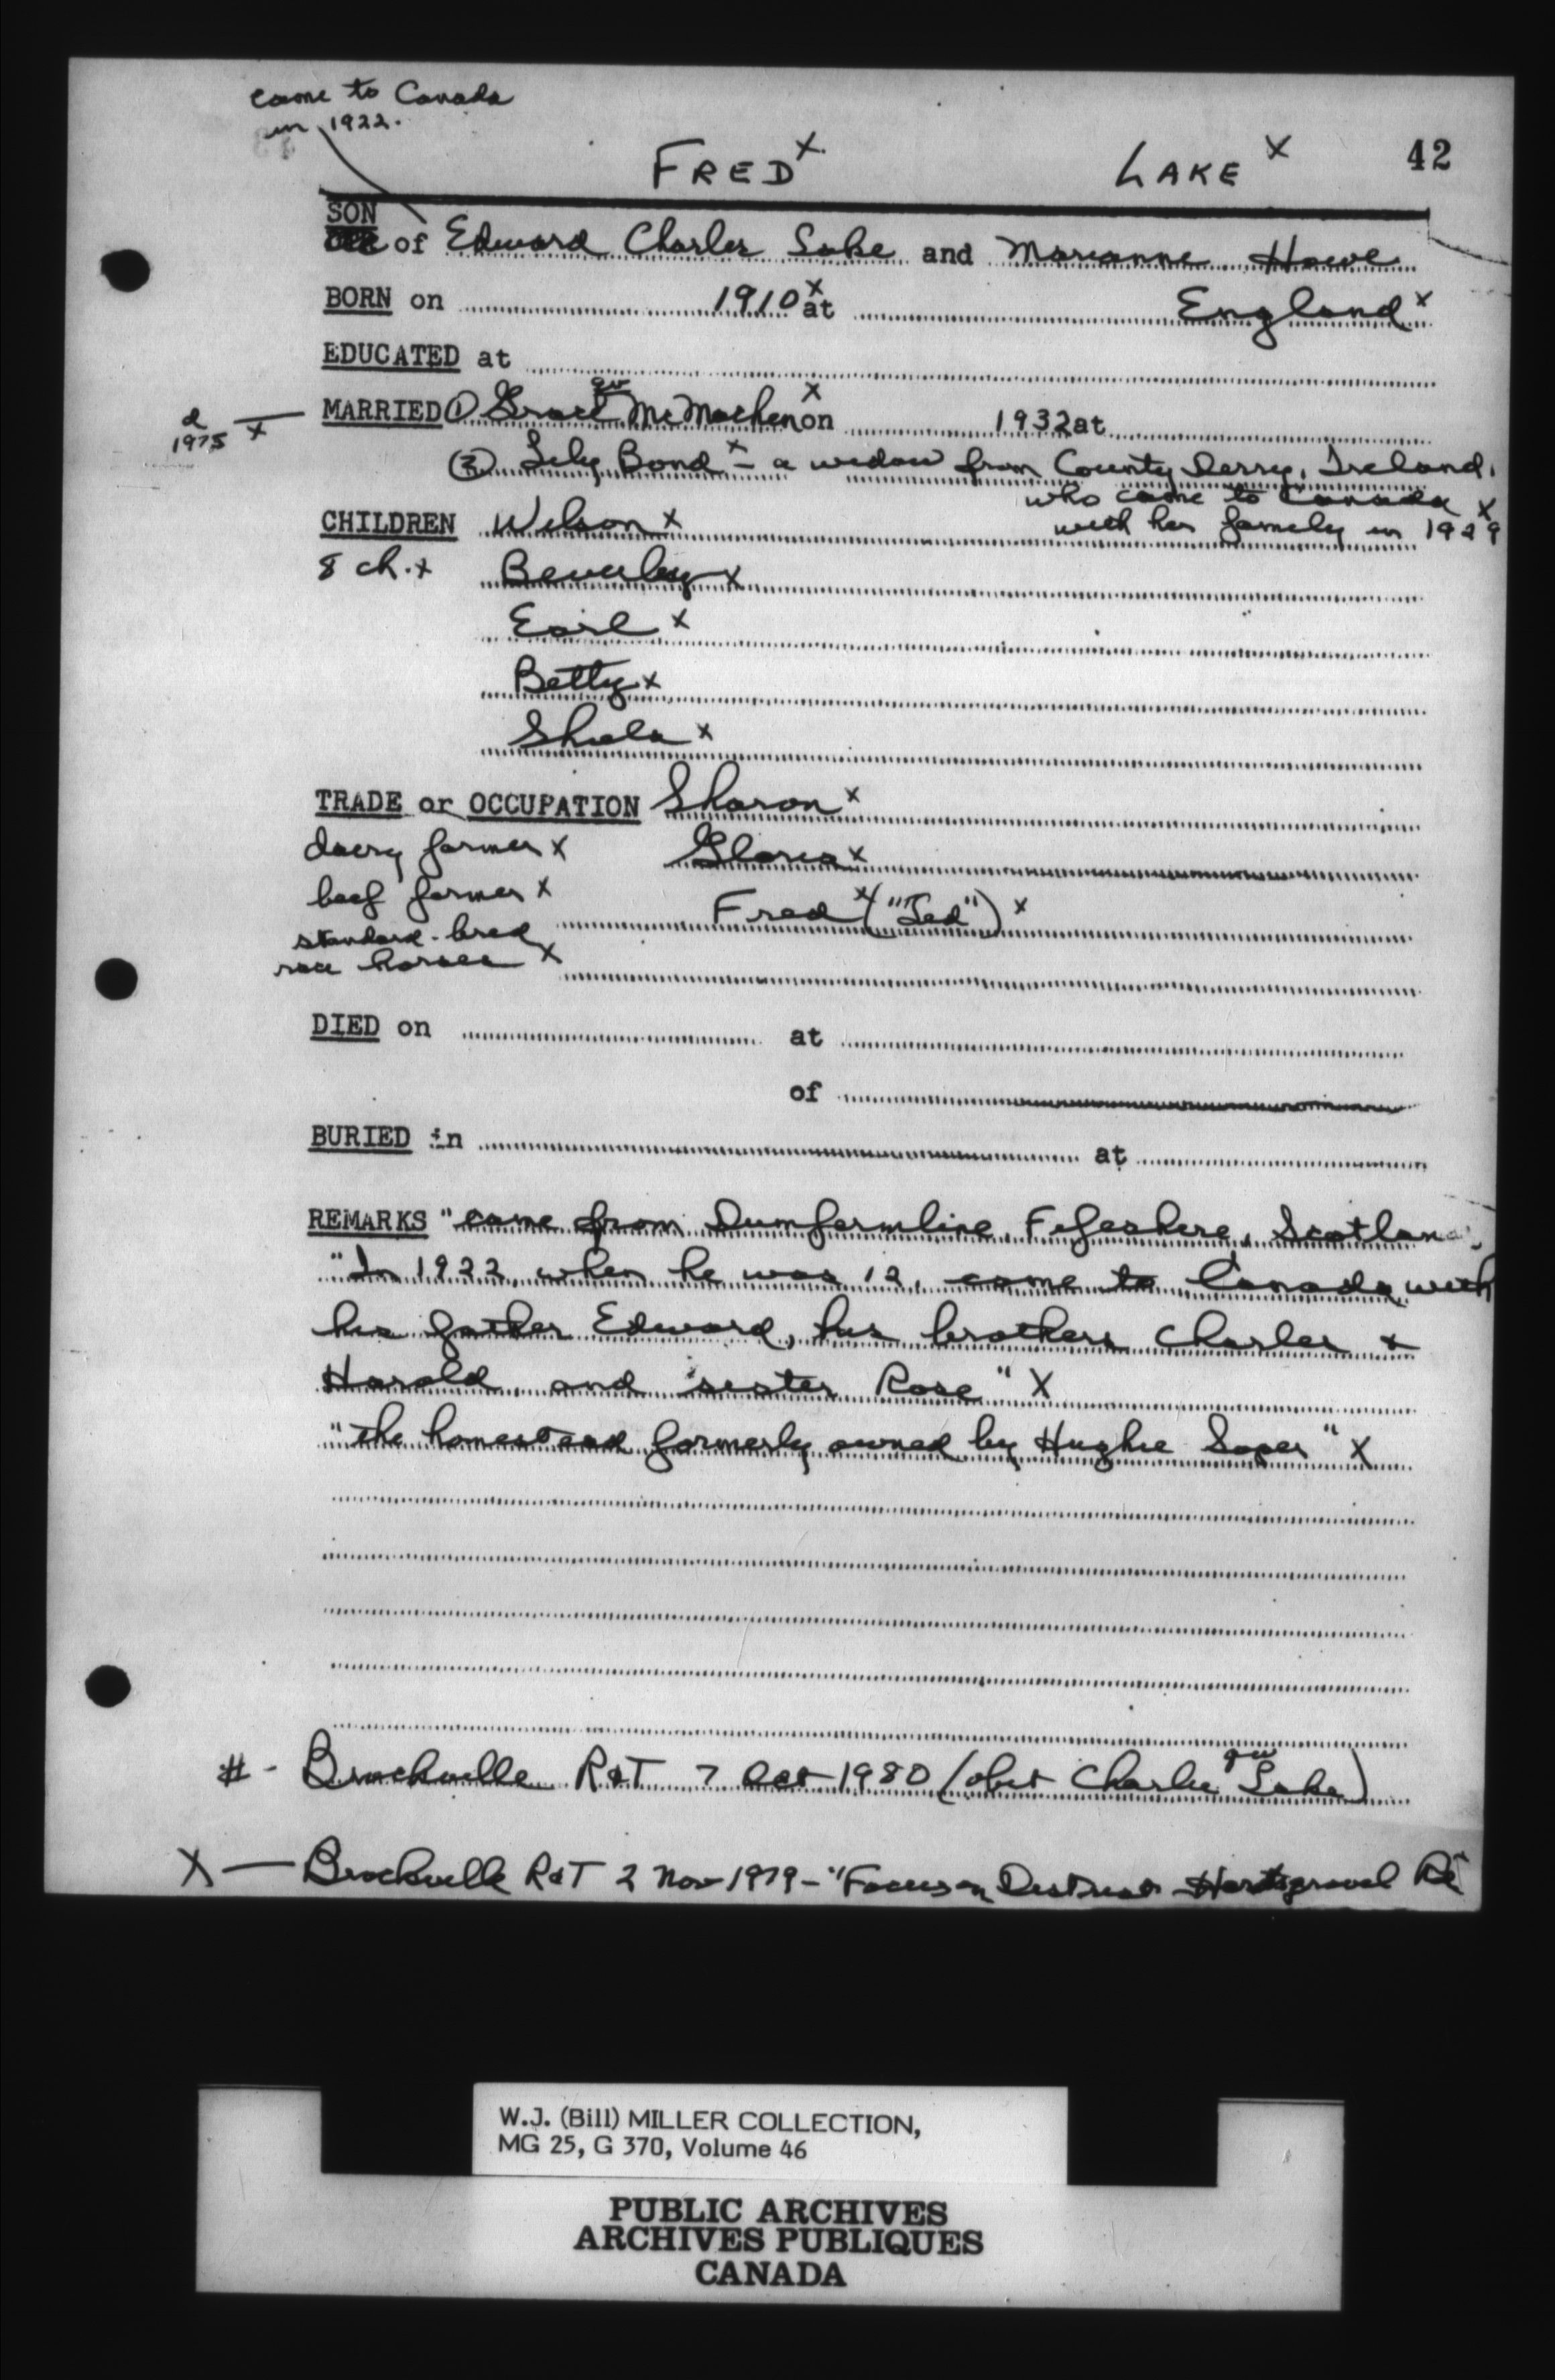 came to Canada
in 1922.
FRED x LAKE x 42
SON
of Edward Charles Lake and Marianne Howe
BORN on 1910 x at England x
EDUCATED at
d 1975 x — MARRIED ① Grace qv McMachen x on 1932 at
② Lily Bond x - a widow from County Derry, Ireland,
who came to Canada x
with her family in 1929
CHILDREN Wilson x
8 ch. x Beverley x
Earl x
Betty x
Shiela x
TRADE or OCCUPATION Sharon x
dairy farmer x Gloria x
beef farmer x
Fred x ("Ted") x
standard-bred
race horses x
DIED on at
of
BURIED in at
REMARKS "came from Dumfermline, Fifeshire, Scotland
"In 1922, when he was 12, came to Canada with
his father Edward, his brothers Charles +
Harold and sister Rose" X
"the homestead formerly owned by Hughie Soper" X
# - Brockville R&T 7 Oct 1980 (obit Charlie qv Lake)
X — Brockville R&T 2 Nov 1979 - "Focus on District Hartsgravel Rd"
W.J. (Bill) MILLER COLLECTION,
MG 25, G 370, Volume 46
PUBLIC ARCHIVES
ARCHIVES PUBLIQUES
CANADA